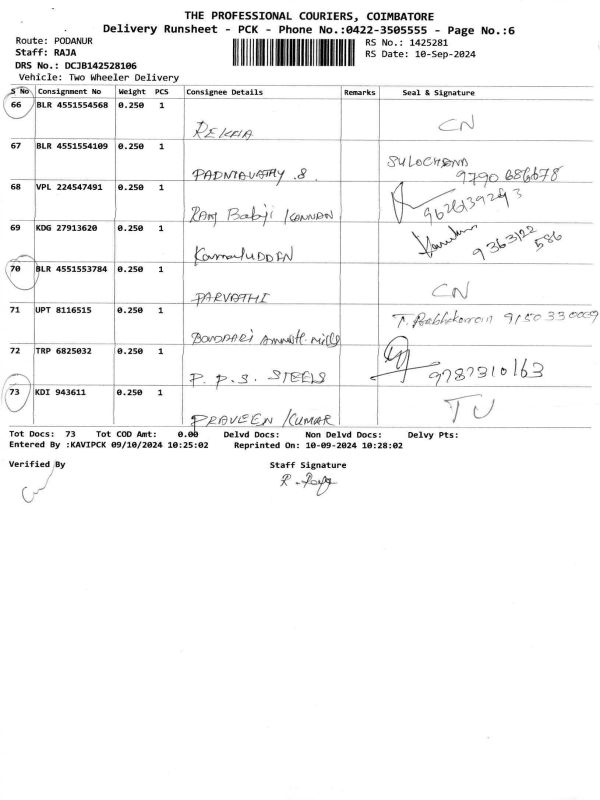 THE PROFESSIONAL COURIERS, COIMBATORE
Delivery Runsheet - PCK - Phone No.:0422-3505555 - Page No.:6
Route: PODANUR RS No.: 1425281
Staff: RAJA RS Date: 10-Sep-2024
DRS No.: DCJB142528106
Vehicle: Two Wheeler Delivery
S No Consignment No Weight PCS Consignee Details Remarks Seal & Signature
66 BLR 4551554568 0.250 1
REKHA CN
67 BLR 4551554109 0.250 1
PADMAVATHY .S. SULOCHANA
9790 686678
68 VPL 224547491 0.250 1
RAM Babji /KANNAN
69 KDG 27913620 0.250 1
KamaluDDIN 9363122
586
70 BLR 4551553784 0.250 1
PARVATHI CN
71 UPT 8116515 0.250 1
T. Prabhakaran 9150330009
72 TRP 6825032 0.250 1
P. P. S. STEELS 9787310163
73 KDI 943611 0.250 1
PRAVEEN /KUMAR
Tot Docs: 73 Tot COD Amt: 0.00 Delvd Docs: Non Delvd Docs: Delvy Pts:
Entered By :KAVIPCK 09/10/2024 10:25:02 Reprinted On: 10-09-2024 10:28:02
Verified By Staff Signature